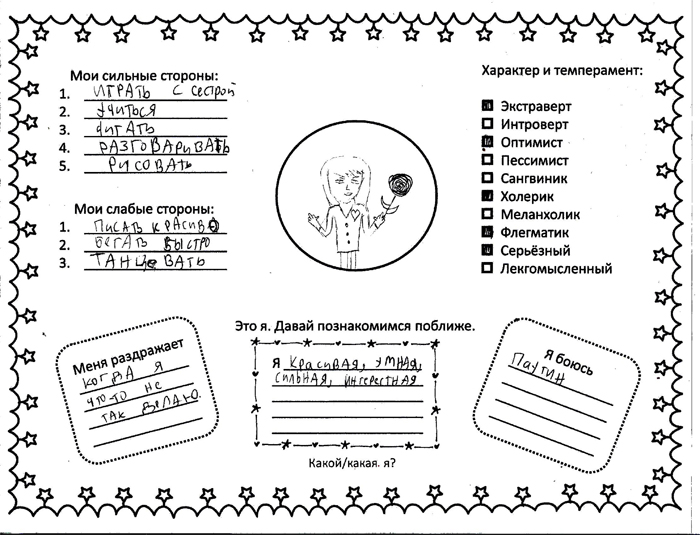 Мои сильные стороны:
1. ИГРАТЬ С сестрой
2. УЧИТЬСЯ
3. ЧИТАТЬ
4. РАЗГОВАРИВАТЬ
5. РИСОВАТЬ
Мои слабые стороны:
1. ПИСАТЬ КРАСИВО
2. БЕГАТЬ БЫСТРО
3. ТАНЦеВАТЬ
Характер и темперамент:
Экстраверт
Интроверт
Оптимист
Пессимист
Сангвиник
Холерик
Меланхолик
Флегматик
Серьёзный
Лекгомысленный
Меня раздражает
КОГДА Я
ЧТО-ТО НЕ
ТАК ДЕЛАЮ.
Это я. Давай познакомимся поближе.
Я КРАСИВАЯ, УМНАЯ,
СИЛЬНАЯ, ИНТЕРЕСТНАЯ
Какой/какая. я?
Я боюсь
ПАУТИН